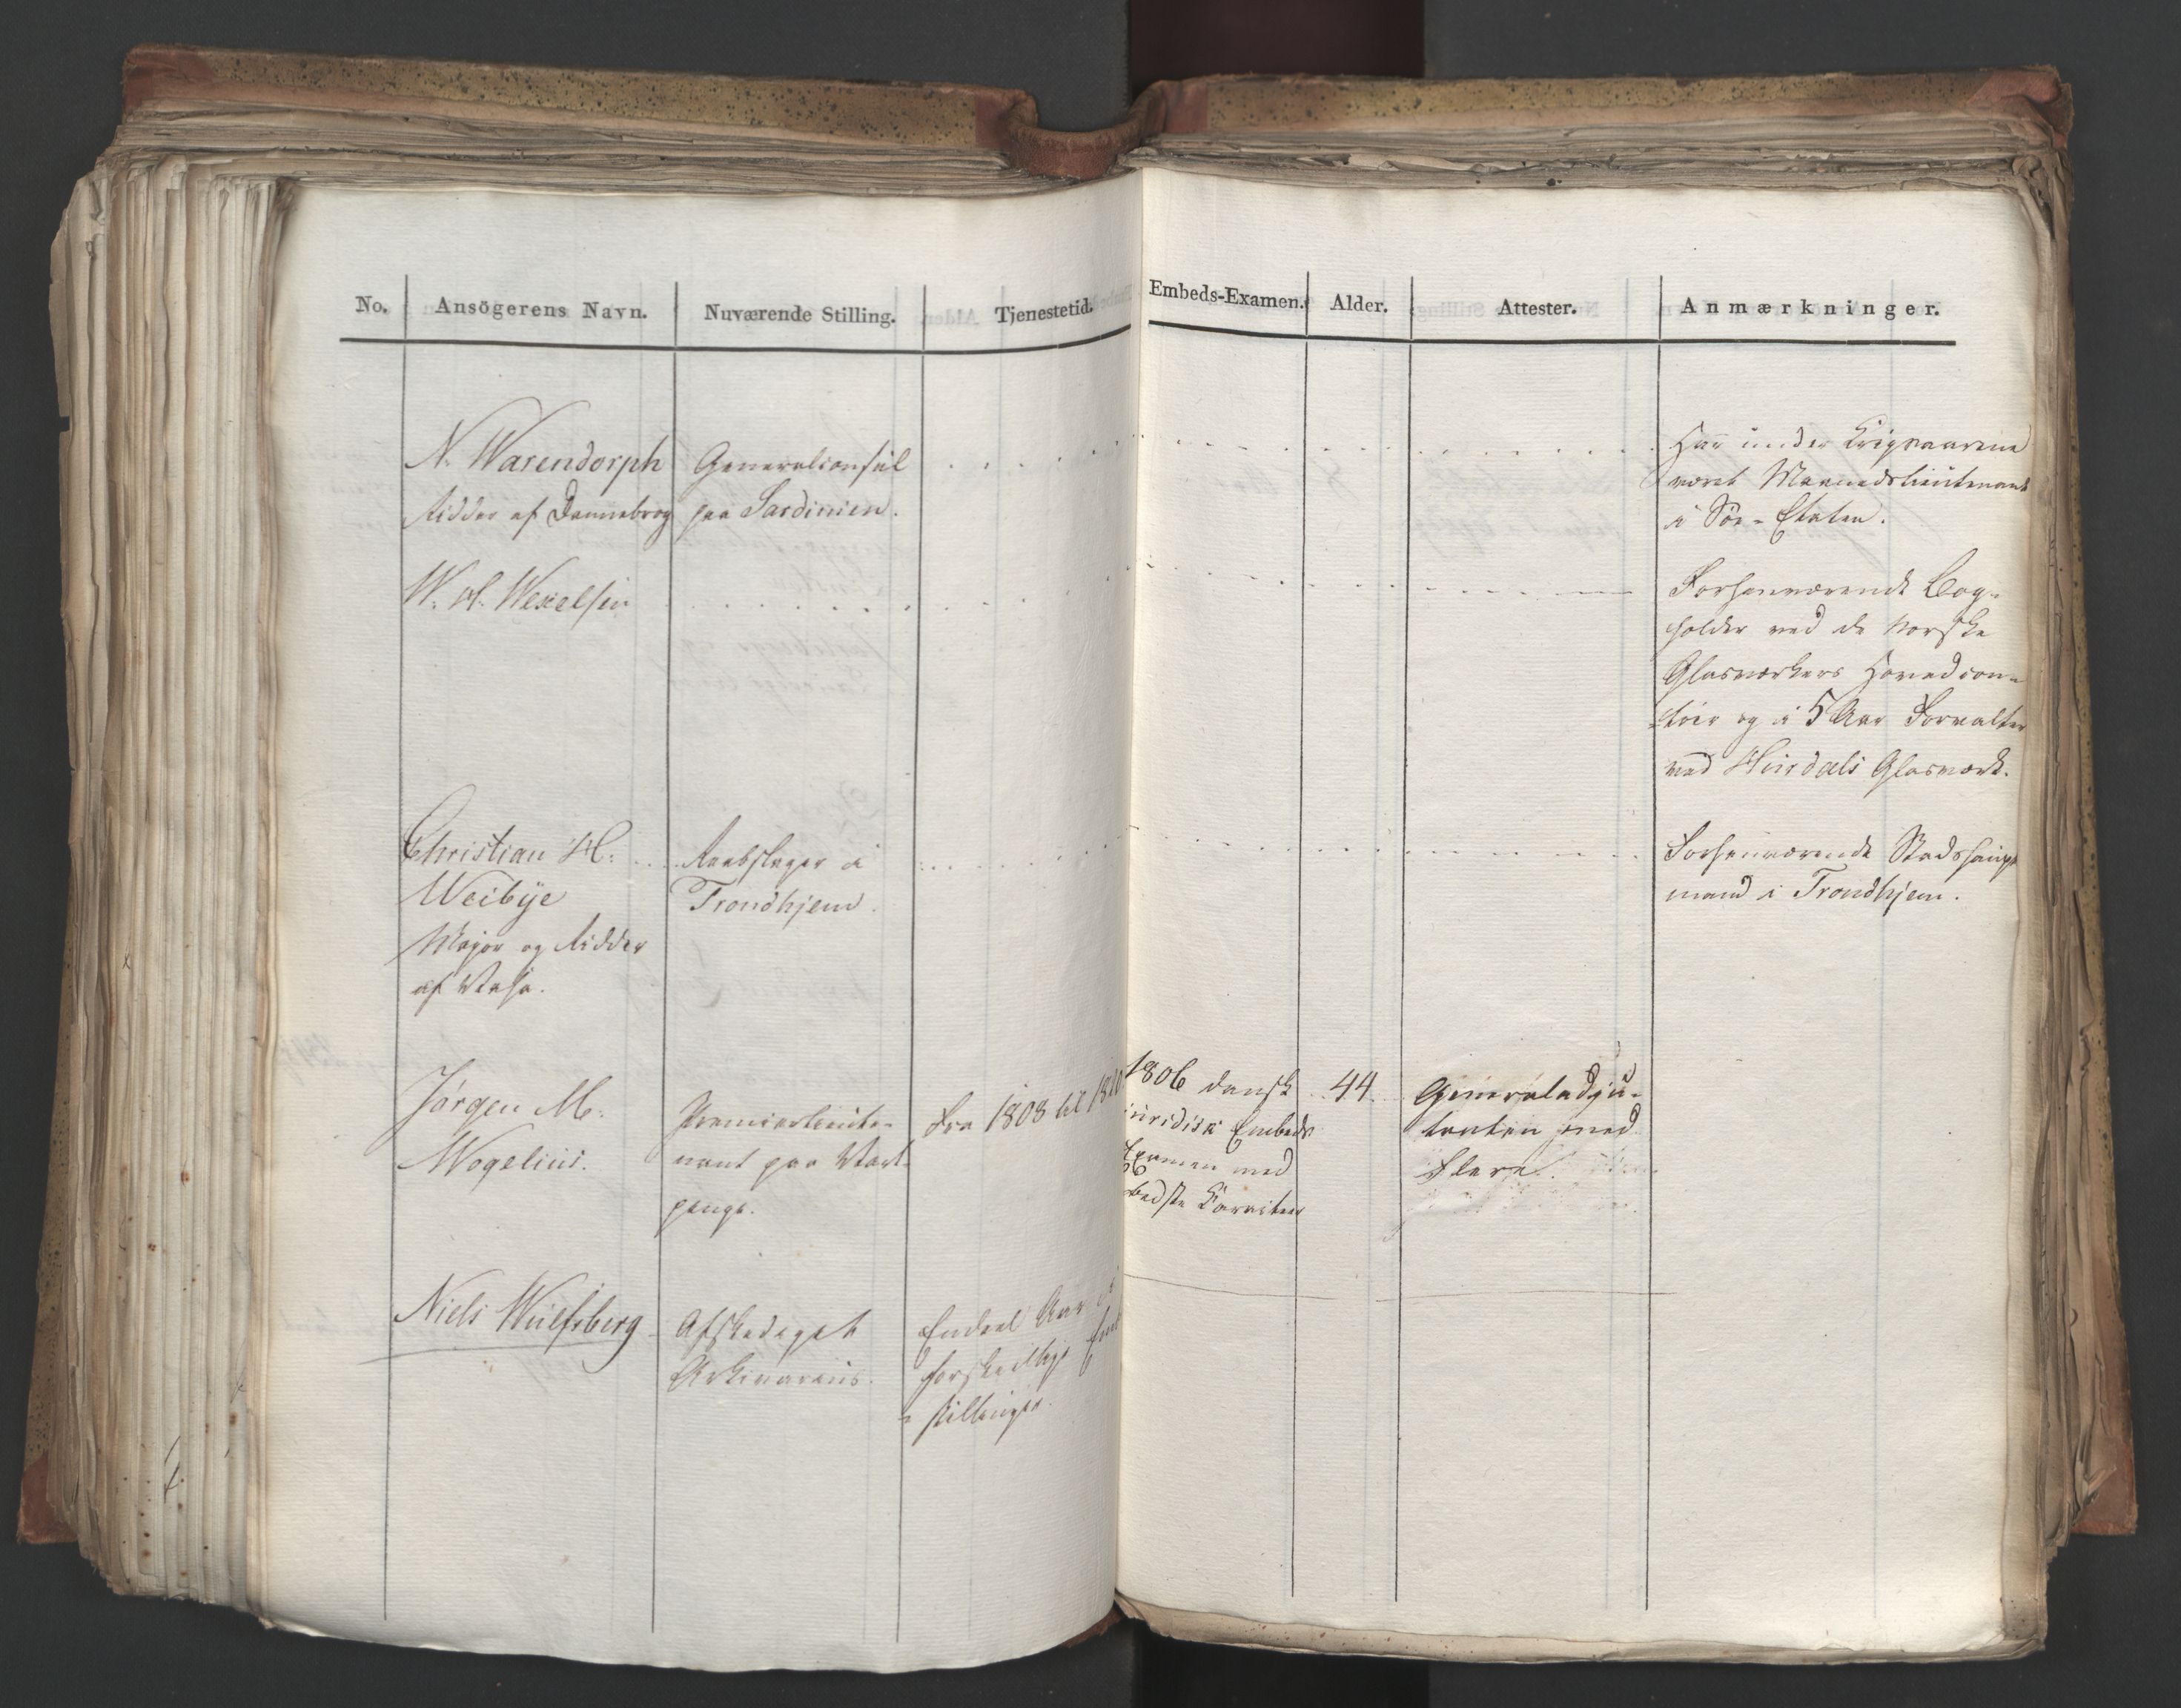 No. Ansögerens Navn. Nuværende Stilling. Tjenestetid. Embeds-Examen. Alder. Attester. Anmærkninger.
N. Warendorph
Ridder af Dannebrog
Generalconsul
paa Sardinien.
Har under Krigsaarene
været Maanedslieutenant
i Söe-Etaten.
W. H. Wexelsen
Forhenværende Bog-
holder ved de norske
Glasværkers Hovedcon-
toir og i 5 Aar Forvalter
ved Hurdals Glasværk.
Christian H.
Weibye
Major og Ridder
af Vasa.
Reebslager i
Trondhjem.
Forhenværende Stadshaupt
mand i Trondhjem.
Jörgen M.
Wogelius.
Premierlieute-
nant paa Vart-
penge.
Fra 1808 til
1806 dansk
juridisk Embeds
Examen med
bedste Karacteer
44
Generaladju-
tanten med
Flere.
Niels Wulfsberg
Afskediget
Arkivarius.
Endeel Aar i
forskellige
stillinger.